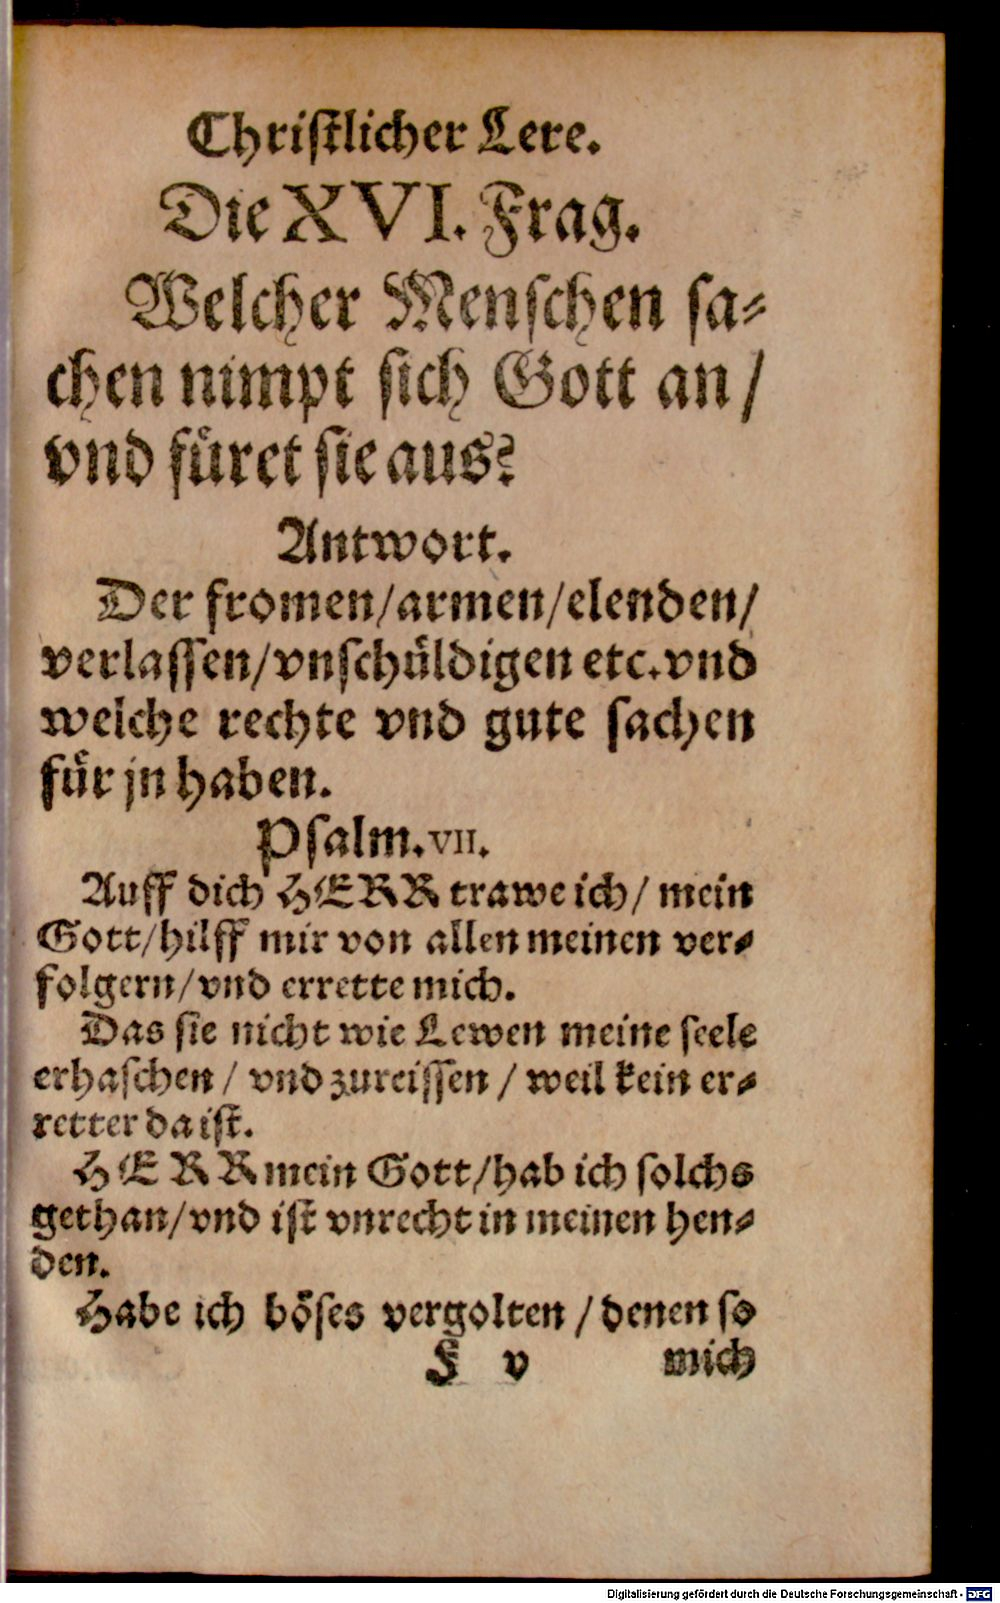 Chriſtlicher Lere.
Die XVI. Frag.
Welcher Menſchen ſa⸗
chen nimpt ſich Gott an/
vnd fuͤret ſie aus?
Antwort.
Der fromen/armen/elenden/
verlaſſen/vnſchuͤldigen etc.vnd
welche rechte vnd gute ſachen
fuͤr jn haben.
Pſalm.VII.
Auff dich HERR trawe ich/ mein
Gott/hilff mir von allen meinen ver⸗
folgern/vnd errette mich.
Das ſie nicht wie Lewen meine ſeele
erhaſchen/ vnd zureiſſen/ weil kein er⸗
retter da iſt.
HERR mein Gott/hab ich ſolchs
gethan/vnd iſt vnrecht in meinen hen⸗
den.
Habe ich boͤſes vergolten/denen ſo
F v mich
Digitalisierung gefördert durch die Deutsche Forschungsgemeinschaft - DFG